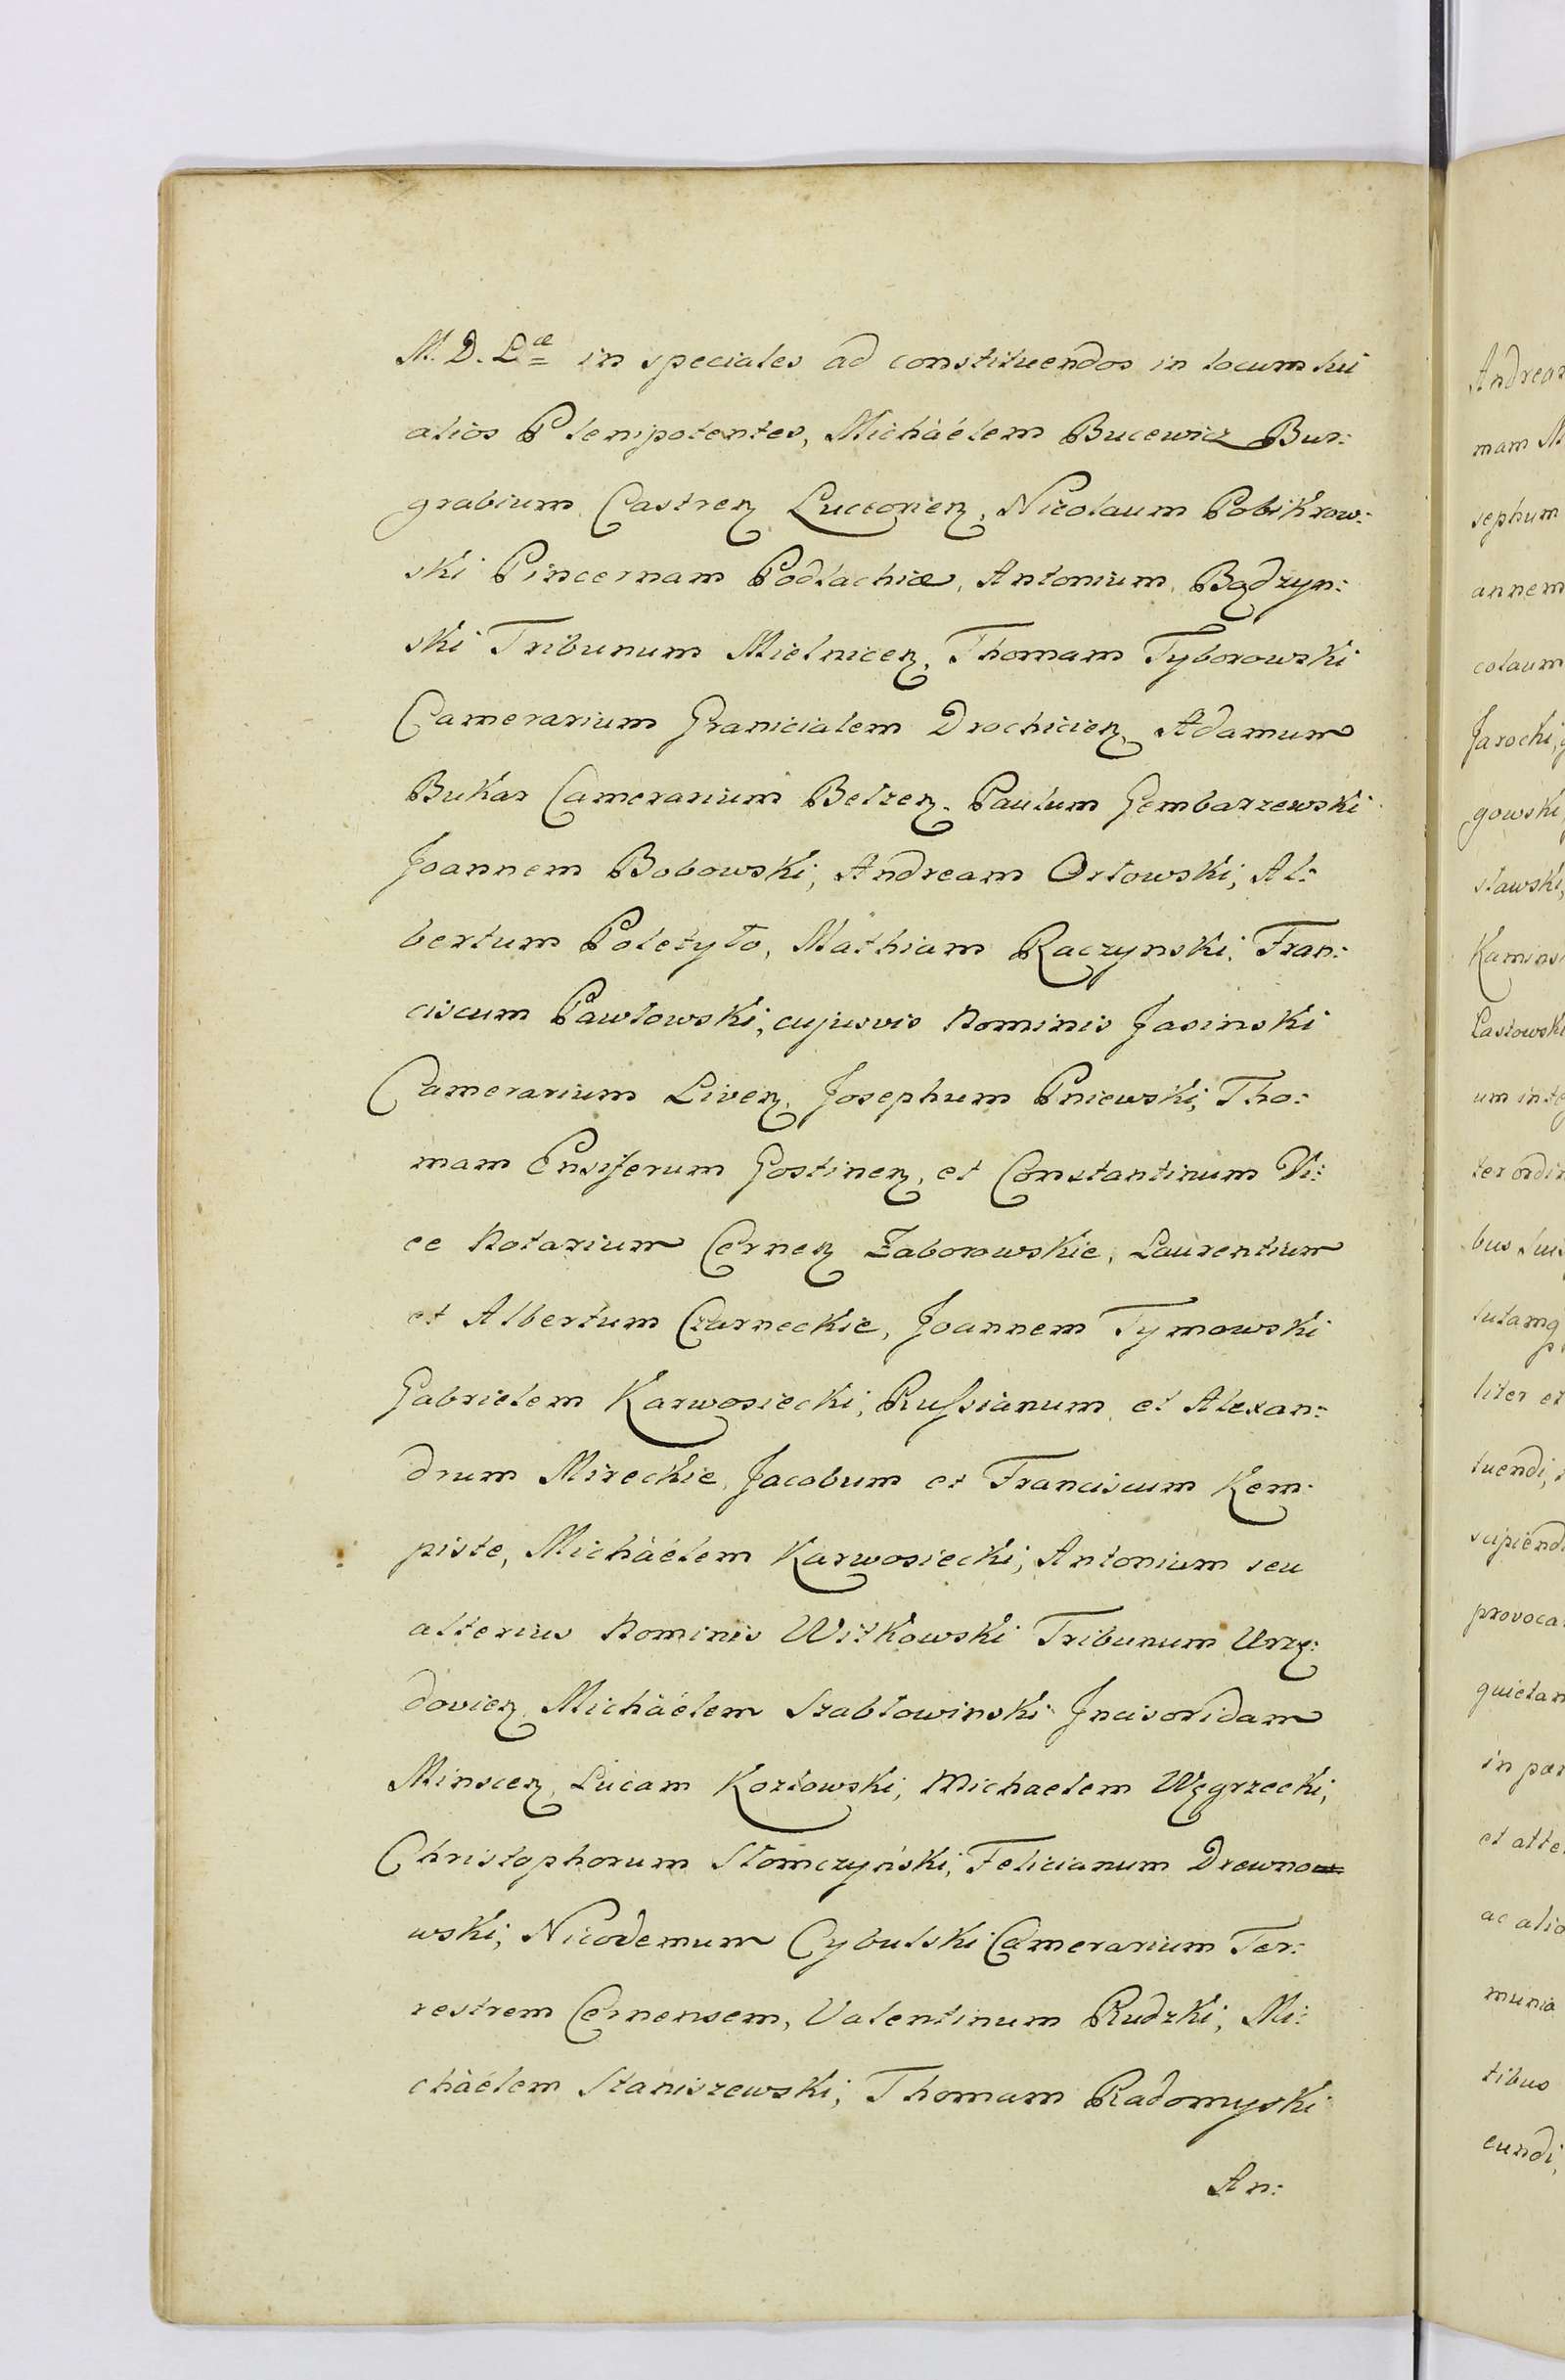 M. D. Læ in speciales ad constituendos in locum sui
alios Plenipotentes, Michàélem Bucewicz Bur:
grabium Castreȵ Lucceorieȵ, Nicolaum Pobikrow:
ski Pincernam Podlachiæ, Antonium Bądzyn:
ski Tribunum Mielniceȵ, Thomam Tyborowski
Camerarium Granicialem Drochicieȵ, Adamum
Bukar Camerarium Belzeȵ. Paulum Gembarzewski
Joannem Bobowski, Andream Orłowski, Al:
bertum Poletyło, Mathiam Raczynski, Fran:
ciscum Pawłowski, cujusvis Nominis Jasinski
Camerarium Liveȵ, Josephum Pniewski, Tho:
mam Ensiferum Gostineȵ, et Constantinum Vi:
ce Notarium Cerneȵ Zaborowskie, Laurentium
et Albertum Czarneckie, Joannem Tymowski
Gabrielem Karwosiecki, Russianum et Alexan:
drum Mireckie, Jacobum et Franciscum Kem:
piste, Michàélem Karwosiecki, Antonium seu
alterius Nominis Witkowski Tribunum Urzę:
dovieȵ, Michàélem Szabłowinski Incisoridam
Minsceȵ, Lucam Kozłowski, Michaelem Węgrzecki,
Christophorum Słomczyński, Felicianum Drewno
wski, Nicodemum Cybulski Camerarium Ter:
restrem Cernensem, Valentinum Rudzki, Mi:
chàélem Staniszewski, Thomam Radomyski
An:
Andrea
mam M
sephum
annem
colaum
Jarocki,
gowski,
sławski,
Kamins
Lasłowski
um inte
ter ordin
bus suis
lutamq
liter et
tuendi,
scipiend
provoca
quietan
in par
et alte
ac alio
munia
tibus
cundi,